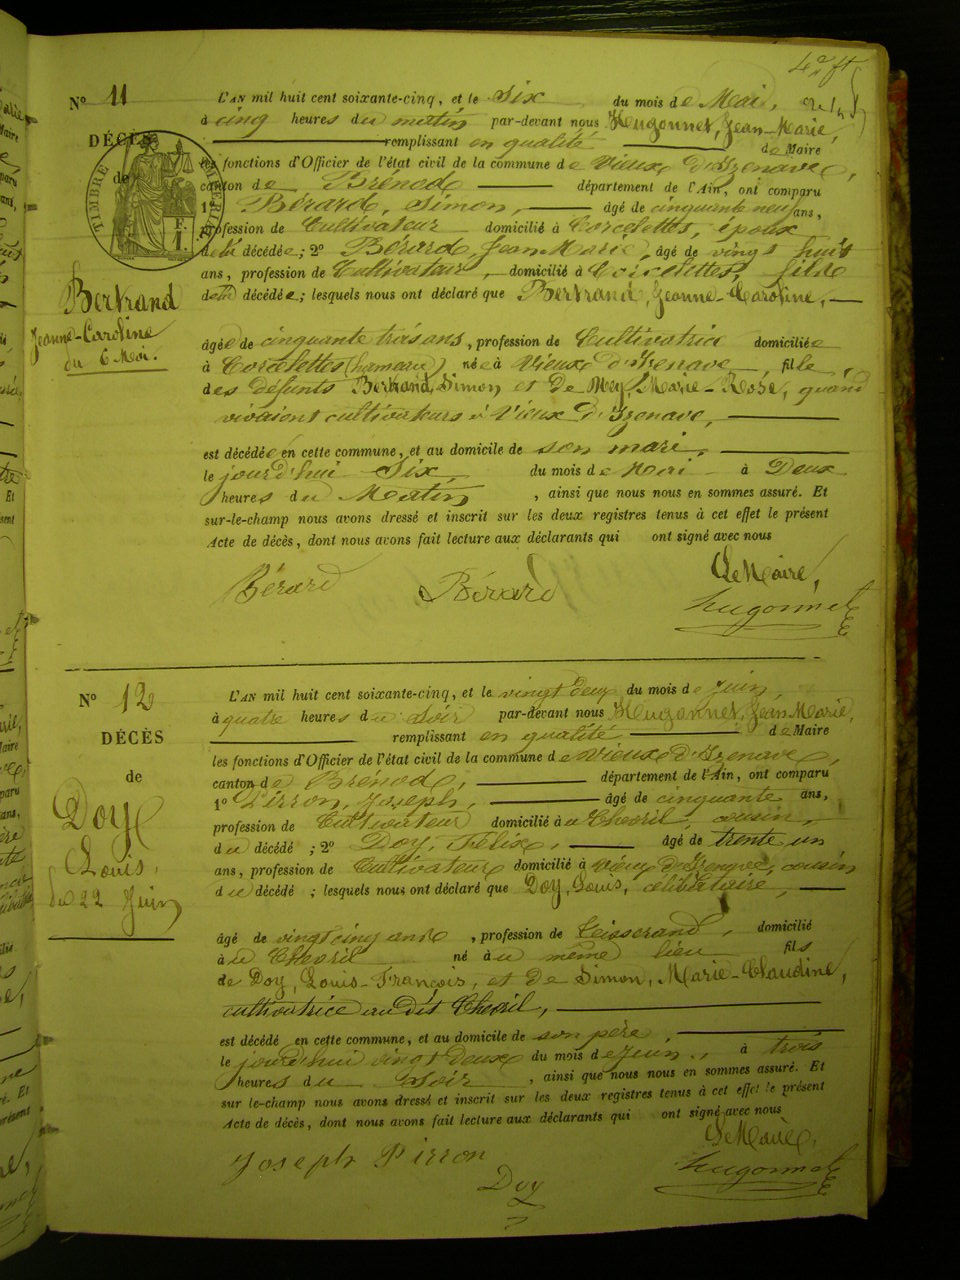 Nº 11
DÉCÈS
de
TIMBRE IMPÉRIAL
F.
1.
Bertrand
Jeanne-Caroline
du 6 Mai.
L'AN mil huit cent soixante-cinq, et le six du mois de Mai,
à cinq heures du matin par-devant nous Hugonnet, Jean-Marie,
remplissant en qualité de Maire
les fonctions d'Officier de l'état civil de la commune de Vieux d'Izenave,
canton de Brénod département de l'Ain, ont comparu
1º Bérard, Simon, âgé de cinquante neuf ans,
profession de Cultivateur domicilié à Corcelettes, époux
de la décédée; 2º Bérard, Jean Marie, âgé de vingt huit
ans, profession de Cultivateur, domicilié à Corcelettes, fils
de la décédée; lesquels nous ont déclaré que Bertrand, Jeanne-Caroline,
âgée de cinquante trois ans, profession de Cultivatrice domiciliée
à Corcelettes (hameau) née à Vieux d'Izenave, fille
des défunts Bertrand, Simon et de Mey, Marie-Rose, quand
vivaient cultivateurs à Vieux d'Izenave,
est décédée en cette commune, et au domicile de son mari,
le jourd'hui six, du mois de Mai à Deux
heures du Matin, ainsi que nous nous en sommes assuré. Et
sur-le-champ nous avons dressé et inscrit sur les deux registres tenus à cet effet le présent
Acte de décès, dont nous avons fait lecture aux déclarants qui ont signé avec nous
Le Maire,
Bérard Bérard Hugonnet
Nº 12
DÉCÈS
de
Doy
Louis,
du 22 Juin
L'AN mil huit cent soixante-cinq, et le vingt deux du mois de Juin,
à quatre heures du soir par-devant nous Hugonnet, Jean Marie,
remplissant en qualité de Maire
les fonctions d'Officier de l'état civil de la commune de Vieux d'Izenave,
canton de Brénod, département de l'Ain, ont comparu
1º Pirron, Joseph, âgé de cinquante ans,
profession de Cultivateur domicilié au Chevril, cousin,
du décédé; 2º Doy, Félix, âgé de trente un
ans, profession de Cultivateur domicilié à Vieux d'Izenave, cousin
du décédé; lesquels nous ont déclaré que Doy, Louis, célibataire,
âgé de vingt cinq ans, profession de Tisserand, domicilié
au Chevril né au même lieu fils
de Doy, Louis-François, et de Simon, Marie-Claudine,
cultivatrice au dit Chevril,
est décédé en cette commune, et au domicile de son père,
le jourd'hui vingt deux du mois de Juin, à trois
heures du soir, ainsi que nous nous en sommes assuré. Et
sur le-champ nous avons dressé et inscrit sur les deux registres tenus à cet effet le présent
Acte de décès, dont nous avons fait lecture aux déclarants qui ont signé avec nous
Le Maire,
Joseph Pirron Hugonnet
Doy